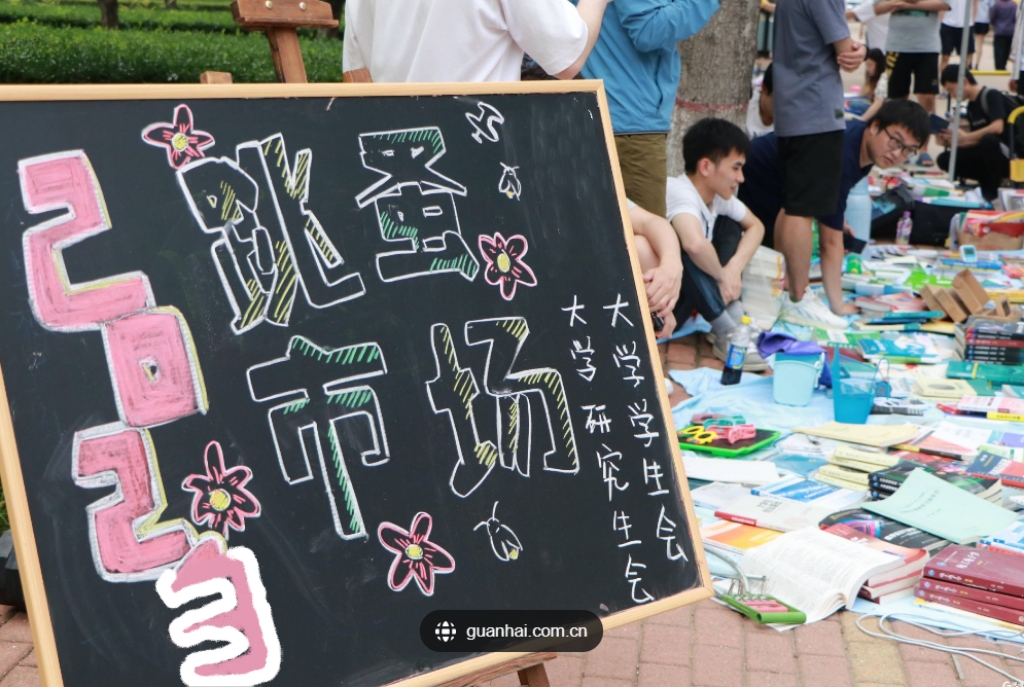 2023
跳蚤
市场
大学学生会
大学研究生会
guanhai.com.cn